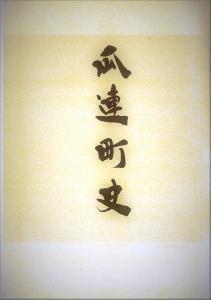 瓜連町史